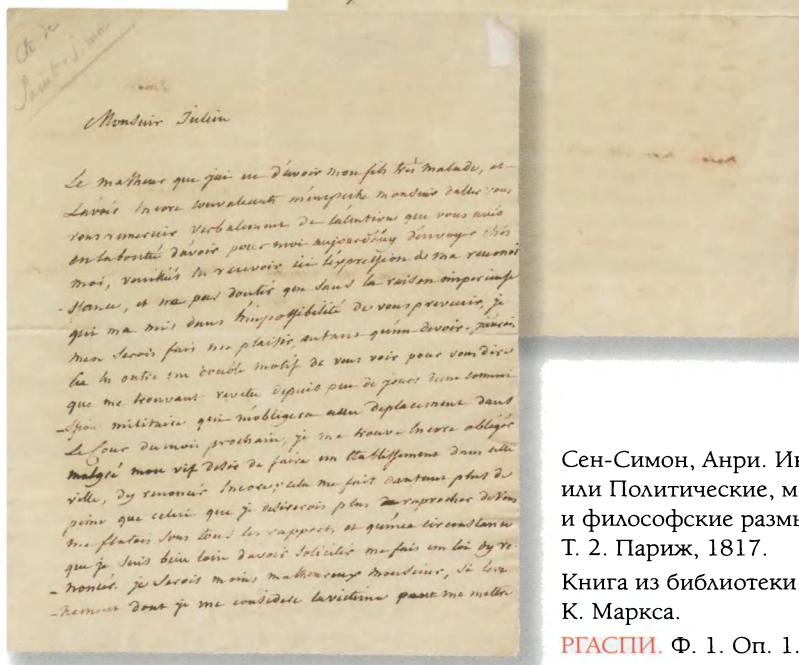 Cte de
Saint-Simon
Monsieur Julien
Le malheur que jai eu davoir mon fils très malade, et
Lavoir Encore convalecent m'enpeche monsieur daller vous
vous remercier verbalement de latention que vous avés
eu la bonté davoir pour moi aujourdhuy denvoyer chés
moi, veuillés En recevoir ici lexpression de ma reconnoi
-ssance, et ne pas doutér que sans la raison imperieuse
qui ma mis dans limpossibilité de vous prevenir, je
men serois fait un plaisir autant qu'un devoir. jaurois
Eu En outre un double motif de vous voir pour vous dire
que me trouvant revetu depuis peu de jours dune commi
-ssion militaire qui m'obligera a un deplacement dans
Le Cour du mois prochain, je me trouve Encore obligé
malgré mon vif desir de faire un Etablissement dans cette
ville, dy renoncer Encore; cela me fait dautant plus de
peine que celui que je desirerois plus raprocher de vous
me flatois sous tous les rapports, et qu'une circonstance
que je suis bien loin davoir solicitér me fais un loi dy re-
-noncér. je serois moins malheureux Monsieur, si
dont je me considere la victime me mettre
Сен-Симон, Анри. Ин
или Политические, м
и философские размы
Т. 2. Париж, 1817.
Книга из библиотеки
К. Маркса.
РГАСПИ. Ф. 1. Оп. 1.